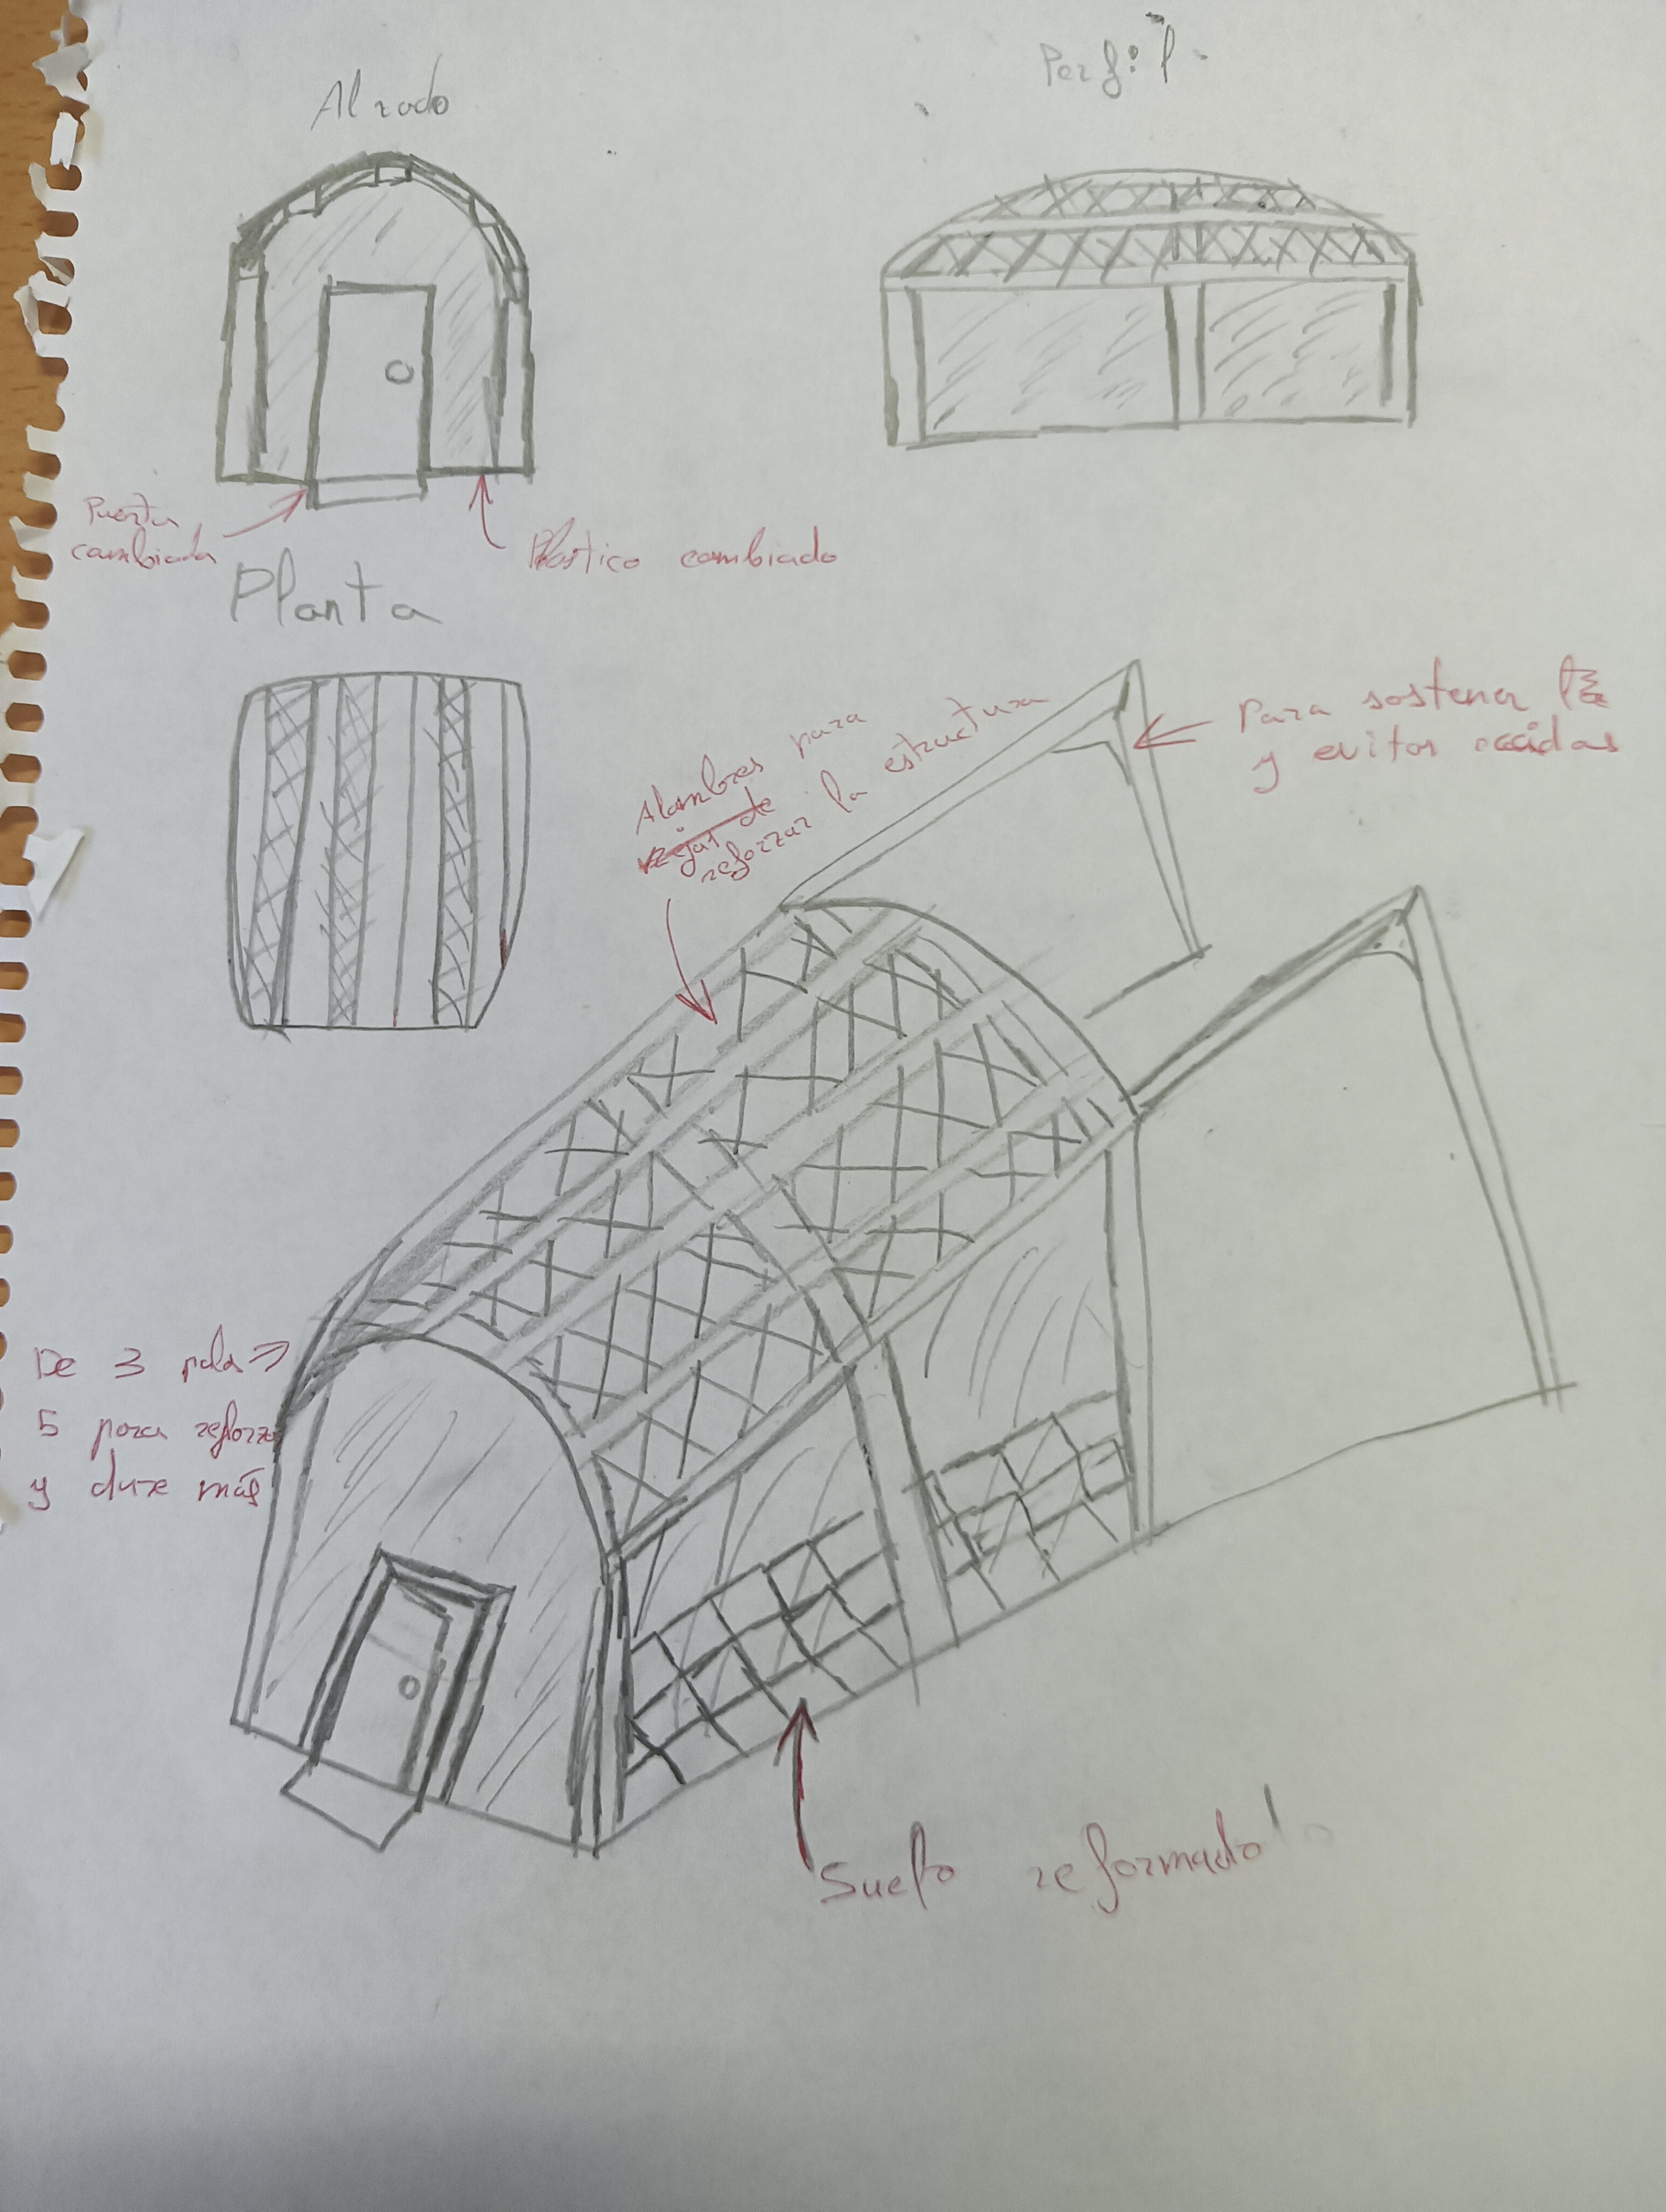 Alzado
Perfil
Puerta
cambiada
Plastico cambiado
Planta
Alambres para
rejas de
reforzar la estructura
Para sostener
y evitar
De 3 palos
5 para reforzar
y dure más
Suelo reformado